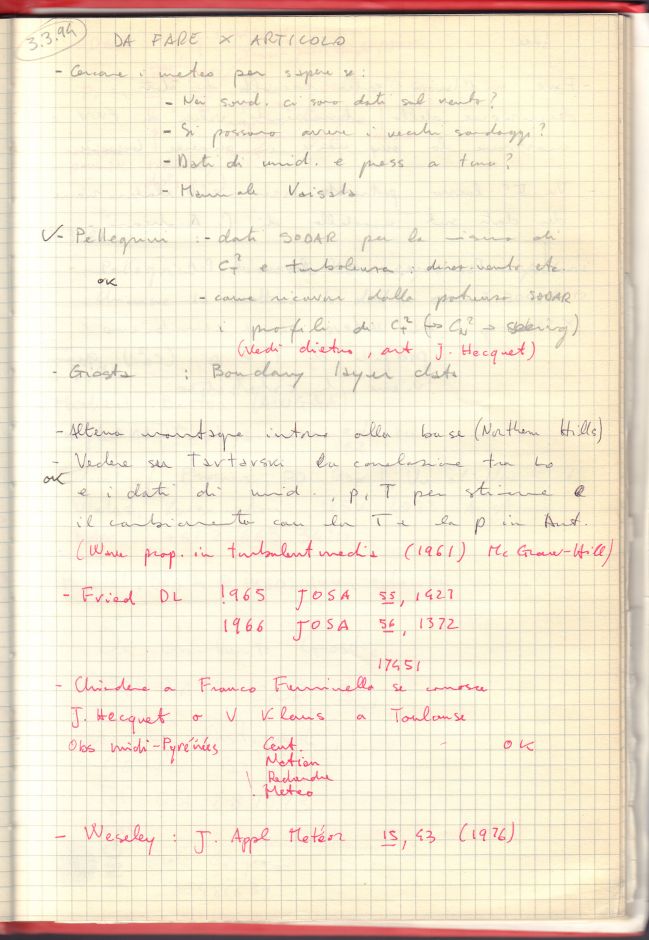 3.3.94
DA FARE × ARTICOLO
- Cercare i meteo per sapere se:
- Nei sond. ci sono dati sul vento?
- Si possono avere i vecchi sondaggi?
- Dati di umid. e press a terra?
- Manuale Vaisala
V - Pellegrini : - dati SODAR per la misura di
C_T² e turbolenza, direz. vento etc.
OK
- come ricavare dalla potenza SODAR
i profili di C_T² (↔ C_N² →
(Vedi dietro, art J. Hecquet)
- Giosta : Boundary layer data
- Altezza montagne intorno alla base (Northern Hills)
- Vedere su Tartarski la correlazione tra
OK
e i dati di umid., p, T per stimare
il cambiamento con la T e la p in Ant.
(Wave prop. in turbulent media (1961) Mc Graw-Hill)
- Fried DL 1965 JOSA 55, 1427
1966 JOSA 56, 1372
17451
- Chiedere a Franco se conosce
J. Hecquet o V Klaus a Toulouse
Obs midi-Pyrénées Cent. OK
Nation
Recherche
Meteo
- Weseley : J. Appl Metéor 15, 43 (1976)